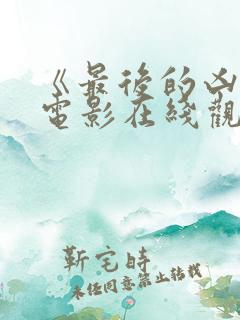 《最後的凶
電影在綫觀
靳宅時
未经同意禁止转载